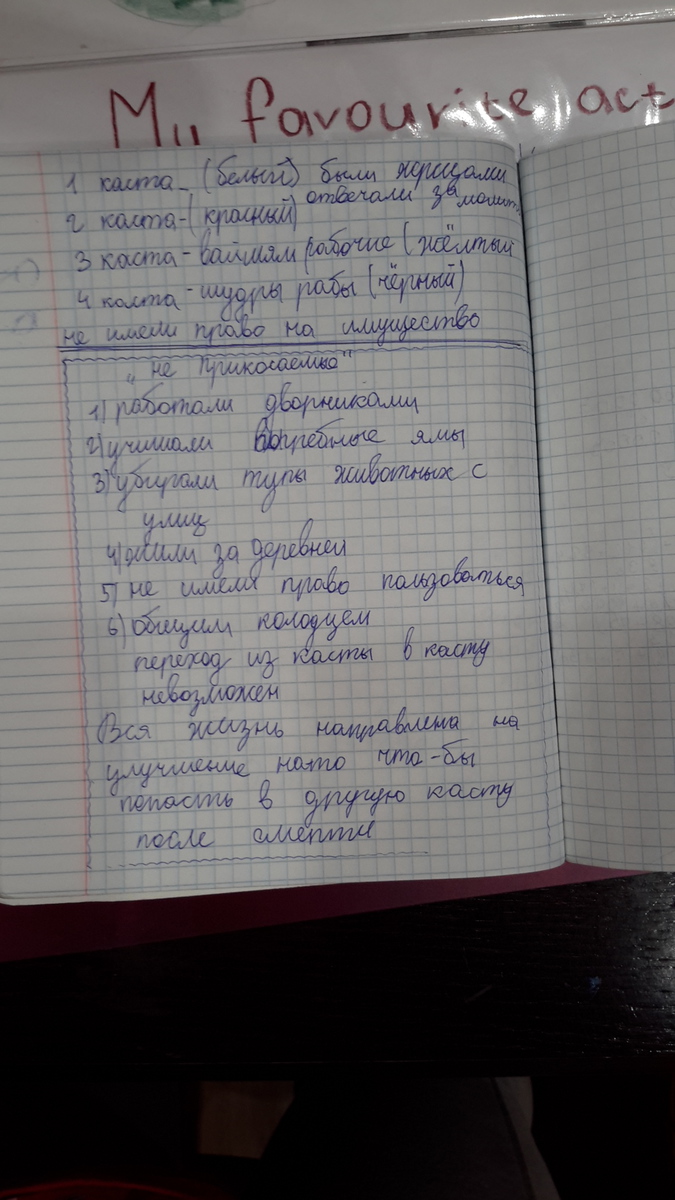 My favourite act
1 каста - (белый) были жрецами
отвечали за молит
2 каста - (красный)
3 каста - вайшям рабочие (жёлтый
4 каста - шудры рабы (чёрный)
не имели право на имущество
"не прикосаемые"
1) работали дворниками
2) учишали выгребные ямы
3) убирали тупы животных с
улиц
4) жили за деревней
5) не имели право пользоваться
6) общим колодцем
переход из касты в касту
невозможен
Вся жизнь направлена на
улучшение нато что-бы
попасть в другую касту
после смерти